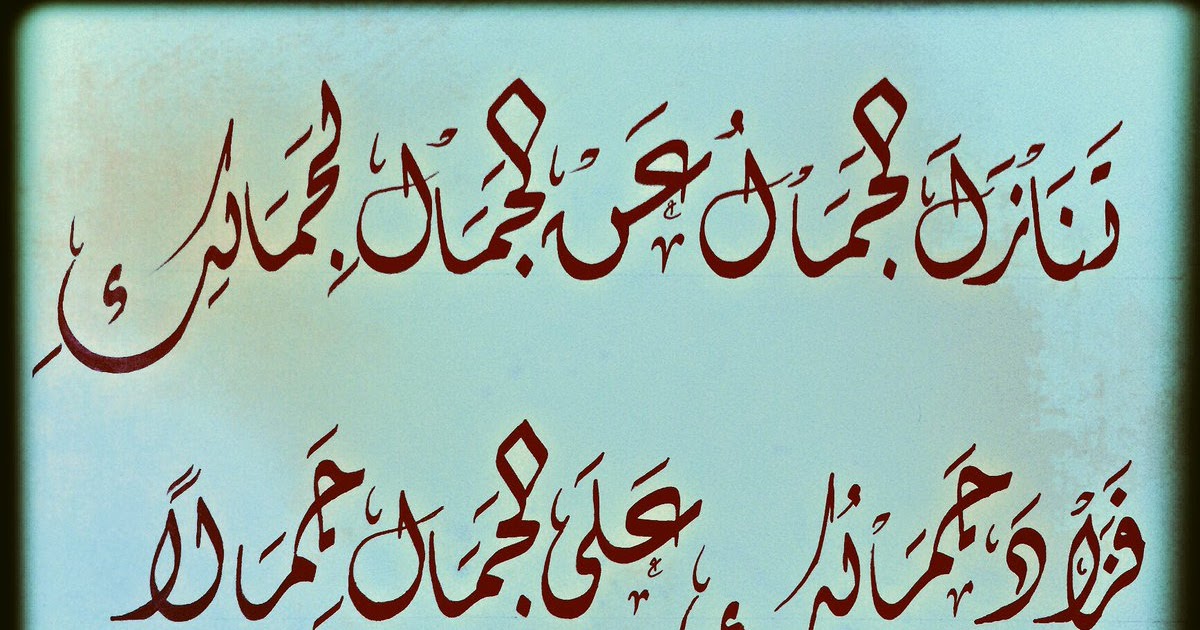 تَنَازَلَ الجَمَالُ عَنْ الجَمَالِ لِجَمَالِكِ
فَزَادَ جَمَالُك عَلَى الجَمَالِ جَمَالاً